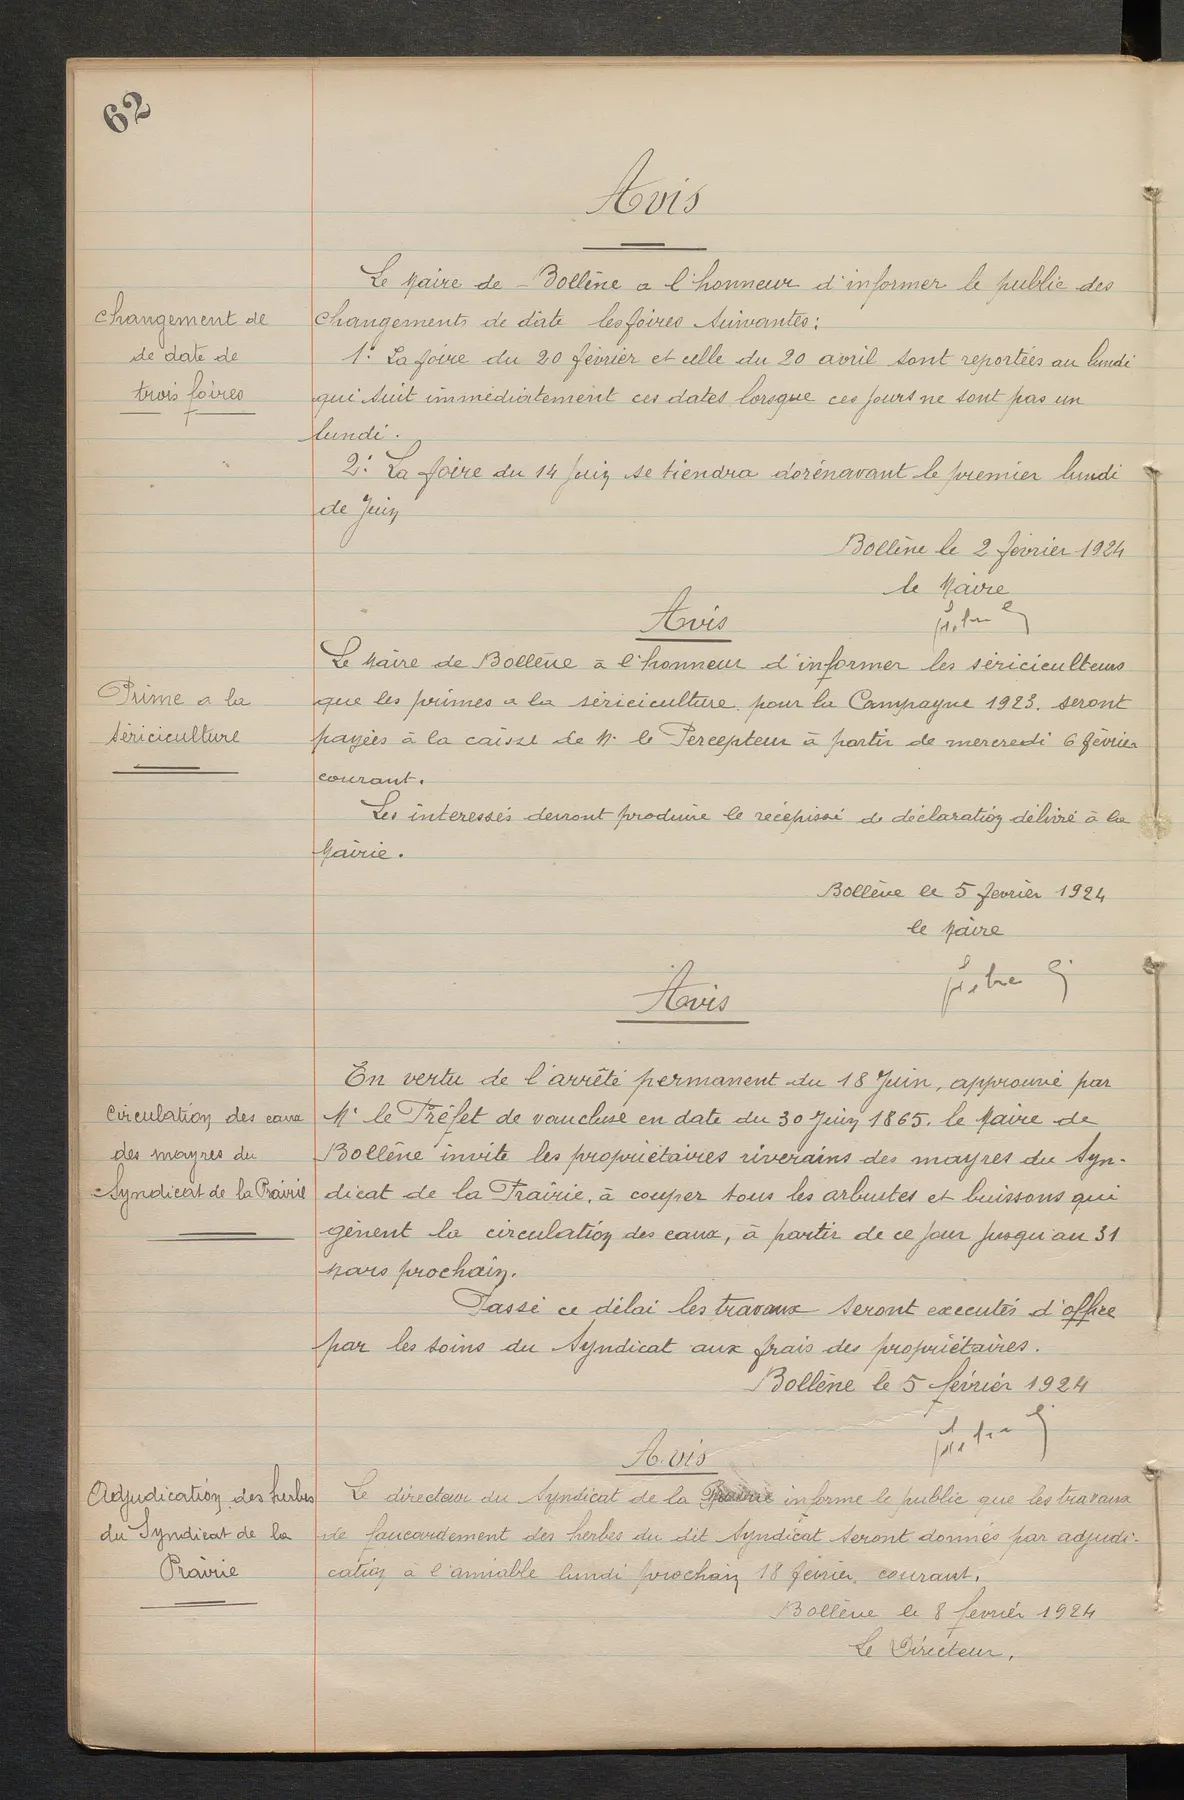 62
Avis
Le Maire de Bollène a l'honneur d'informer le public des
changement de
changements de date les foires suivantes:
de date de
1º La foire du 20 février et celle du 20 avril sont reportées au lundi
trois foires
qui suit immédiatement ces dates lorsque ces jours ne sont pas un
lundi.
2º La foire du 14 Juin se tiendra dorénavant le premier lundi
de Juin
Bollène le 2 février 1924
le Maire
Avis
Le Maire de Bollène a l'honneur d'informer les sériciculteurs
Prime a la
que les primes a la sériciculture pour la Campagne 1923. seront
Sériciculture
payées à la caisse de M. le Percepteur à partir de mercredi 6 février
courant.
Les intéressés devront produire le récépissé de déclaration délivré à la
Mairie.
Bollène le 5 février 1924
le Maire
Avis
En vertu de l'arrêté permanent du 18 Juin, approuvé par
Circulation des eaux
Mr le Préfet de vaucluse en date du 30 Juin 1865. le Maire de
des mayres du
Bollène invite les propriétaires riverains des mayres du Syn-
Syndicat de la Prairie
dicat de la Prairie, à couper tous les arbustes et buissons qui
gênent la circulation des eaux, à partir de ce jour jusqu'au 31
Mars prochain.
Passé ce délai les travaux seront executés d'office
par les soins du Syndicat aux frais des propriétaires.
Bollène le 5 février 1924
Avis
Adjudication des herbes
Le directeur du Syndicat de la Prairie informe le public que les travaux
du Syndicat de la
de faucardement des herbes du dit Syndicat seront donnés par adjudi-
Prairie
cation à l'amiable lundi prochain 18 février courant.
Bollène le 8 février 1924
Le Directeur.